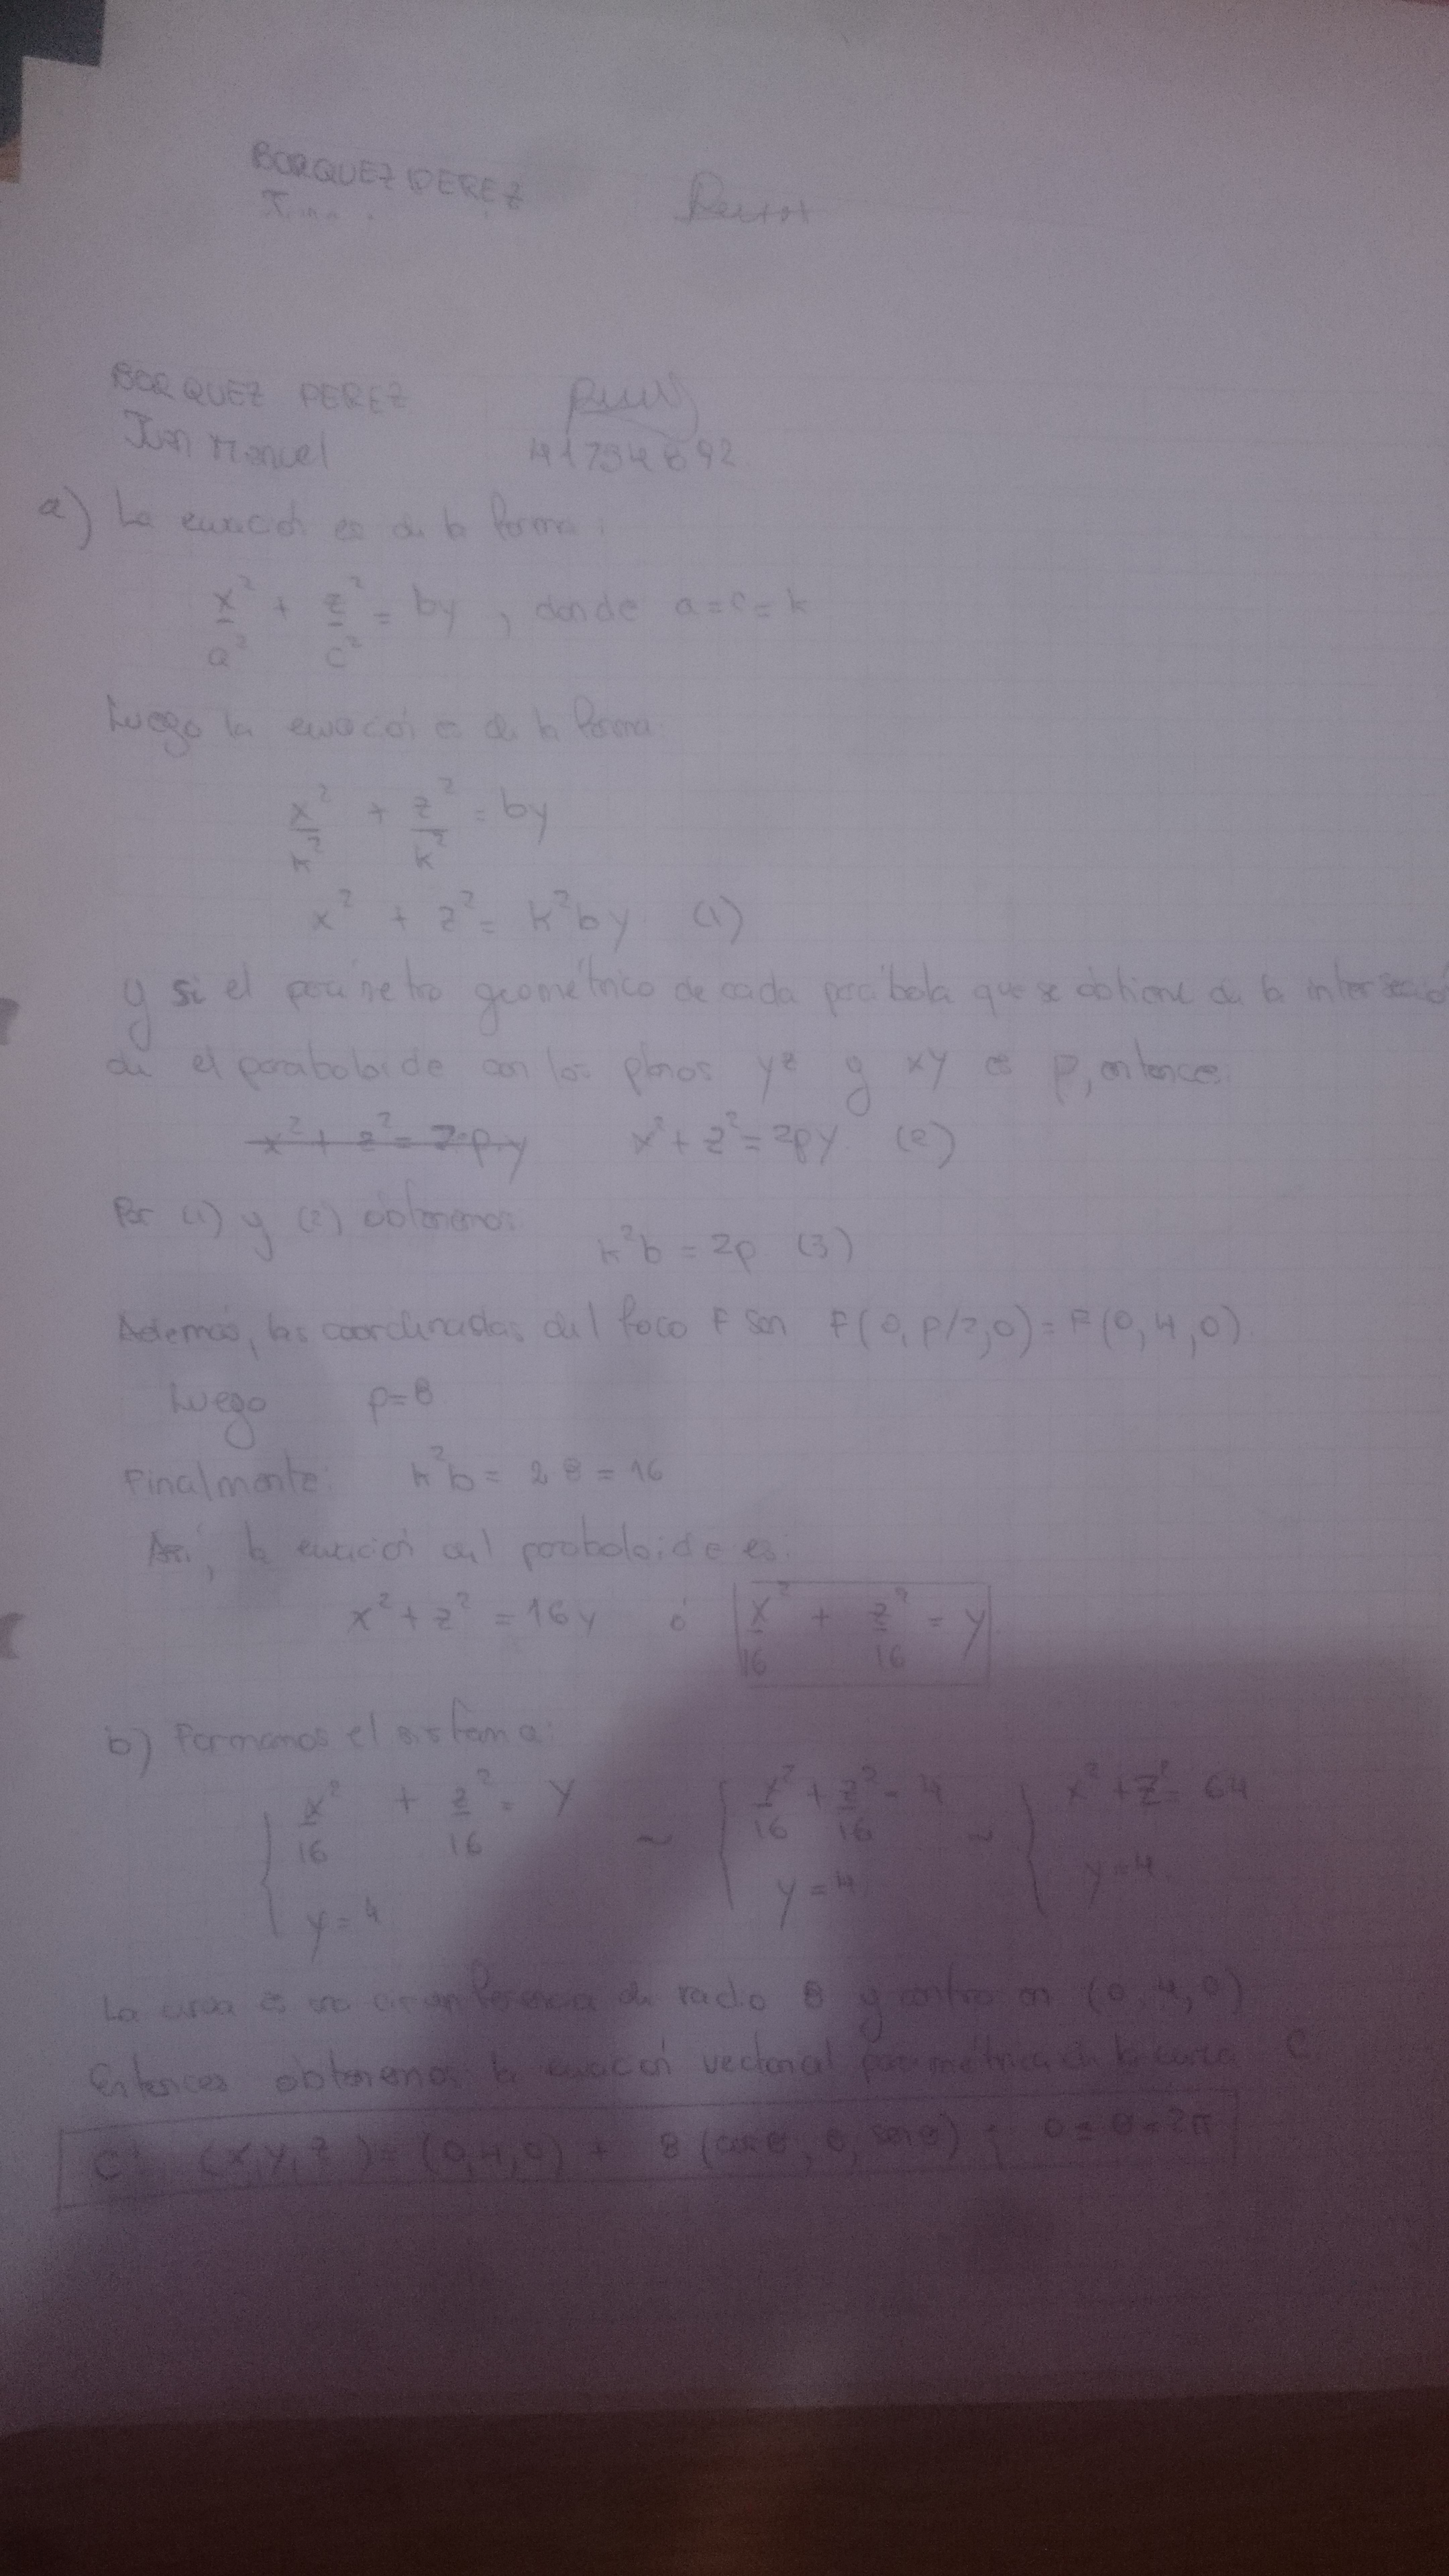 BORQUEZ PEREZ
BORQUEZ PEREZ
Juan Manuel
a) La ecuación es de la forma:
x²/a² + z²/c² = by , donde a=c=k
Luego la ecuación es de la forma:
x²/k² + z²/k² = by
x² + z² = k²by (1)
y si el parámetro geométrico de cada parábola que se obtiene de la intersecció
de el paraboloide con los planos yz y xy es p, entonces
x² + z² = 2py x² + z² = 2py (2)
Por (1) y (2) obtenemos:
k²b = 2p (3)
Además, las coordinadas del foco F son F(0, P/2, 0) = F(0, 4, 0)
Luego p=8
Finalmente: k²b = 2 8 = 16
Así, la ecuación del paraboloide es:
x² + z² = 16y ó x²/16 + z²/16 = y
b) Formamos el sistema:
{ x²/16 + z²/16 = y ~ { x²/16 + z²/16 = 4 ~ { x² + z² = 64
y = 4 y = 4 y = 4
La curva es una circunferencia de radio 8 y centro en (0, 4, 0)
Entonces obtenemos la ecuación vectorial paramétrica de la curva C
C: (x, y, z) = (0, 4, 0) + 8 (cos θ, 0, sen θ) ; 0 ≤ θ ≤ 2π